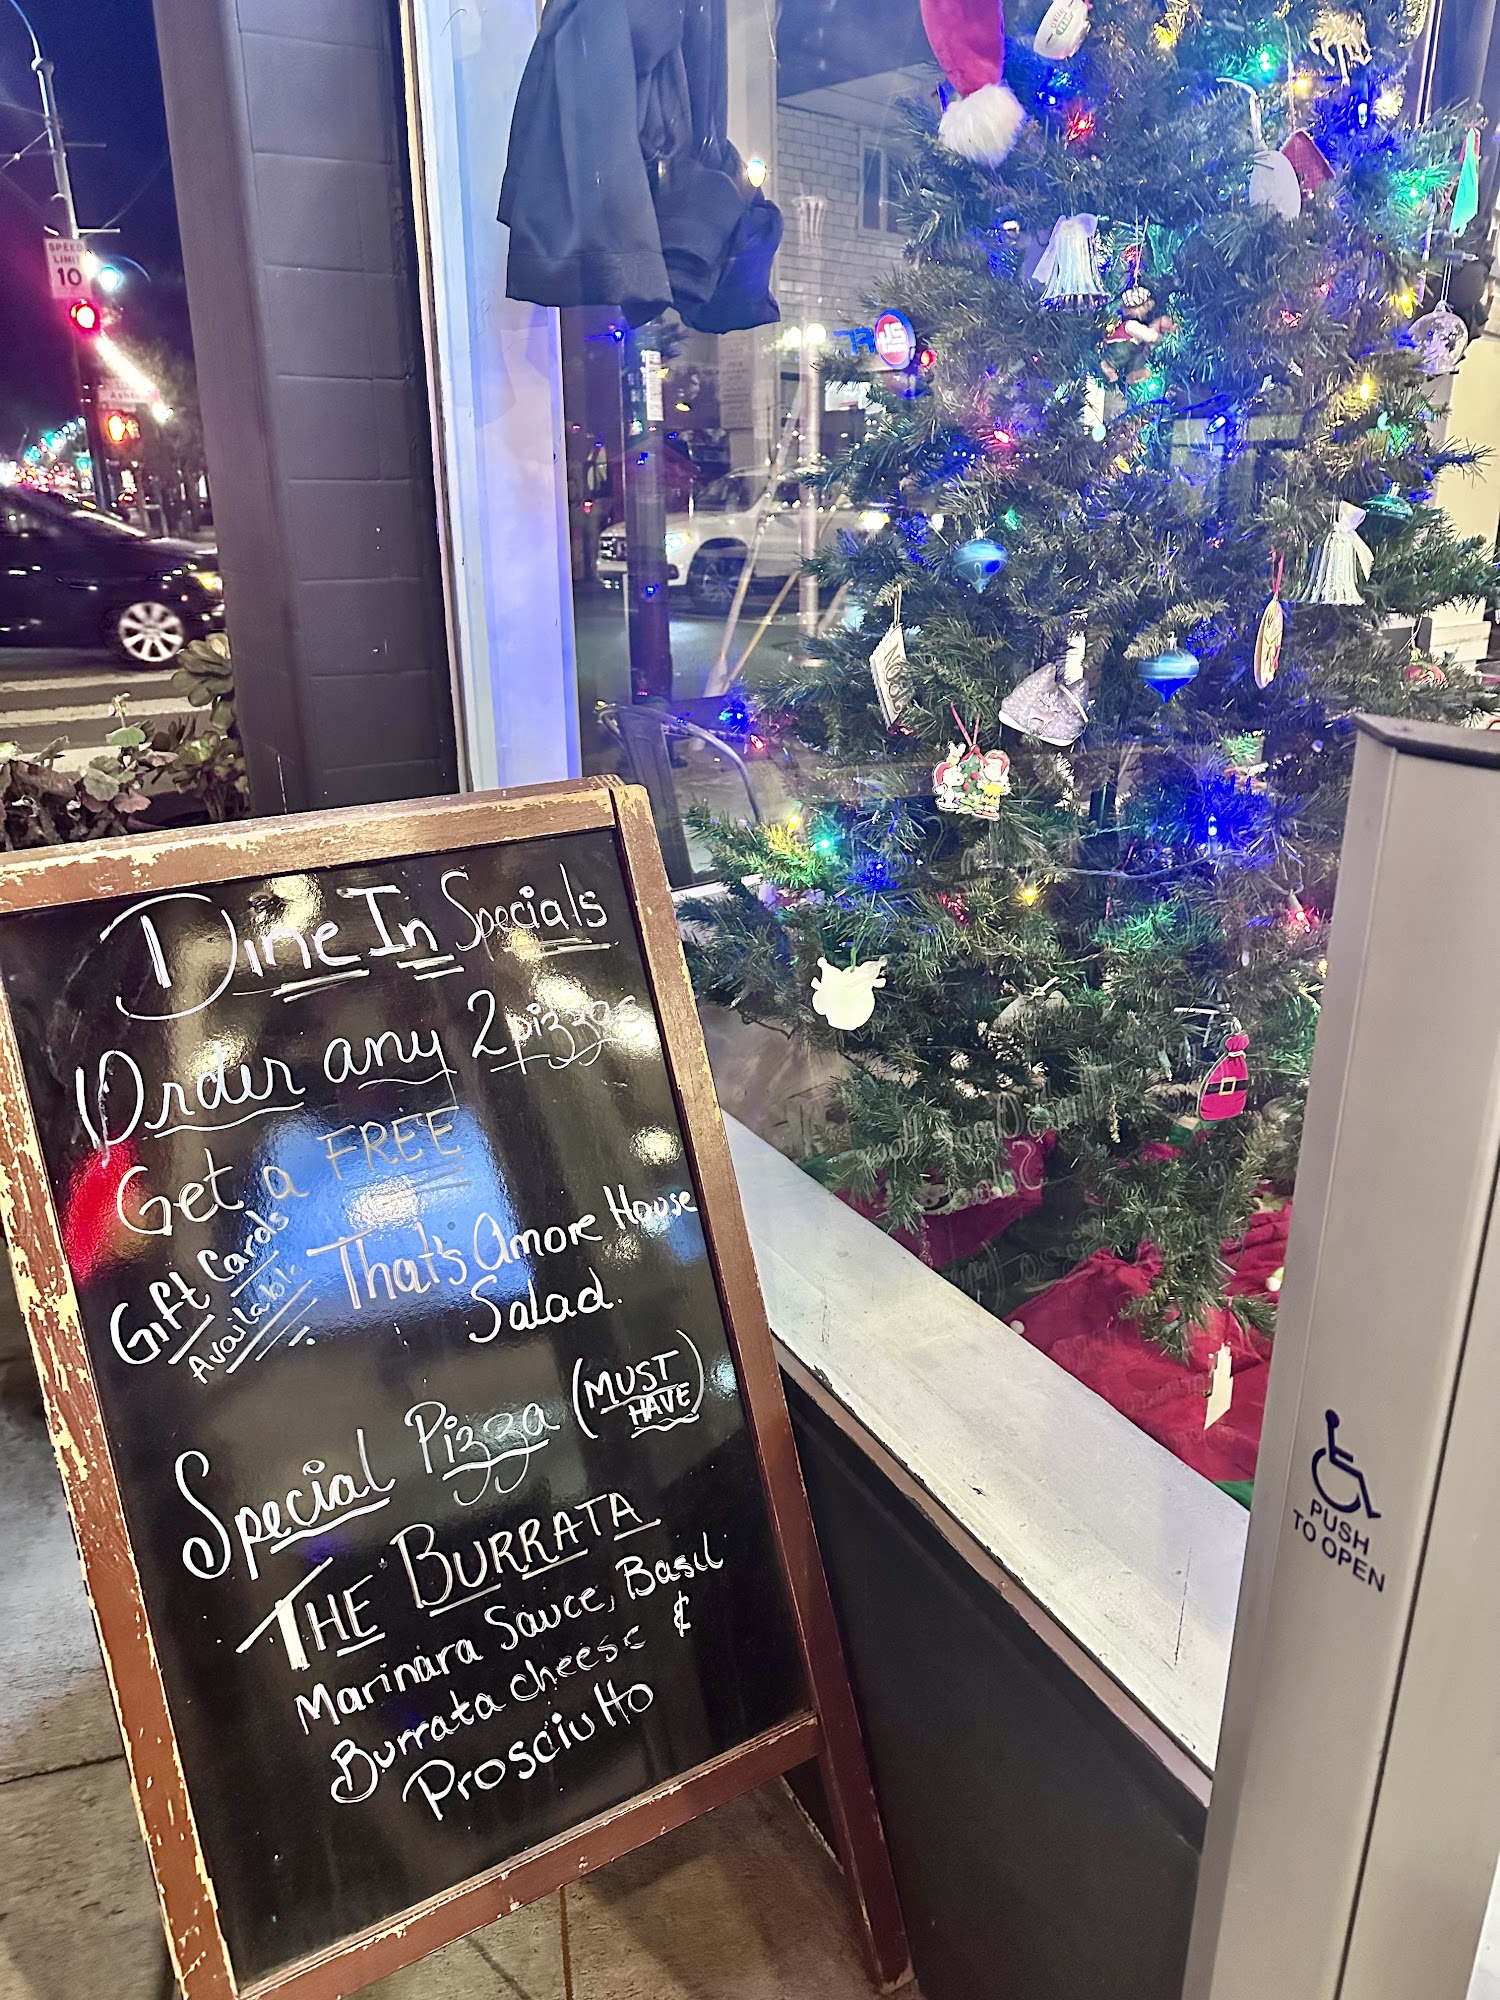 SPEED
LIMIT
10
Dine In Specials
Order any 2 pizzas
Get a FREE
That's Amore House
Salad.
Gift Cards
Available
Special Pizza (MUST
HAVE)
THE BURRATA
Marinara Sauce, Basil
Burrata cheese &
Prosciutto
PUSH
TO OPEN